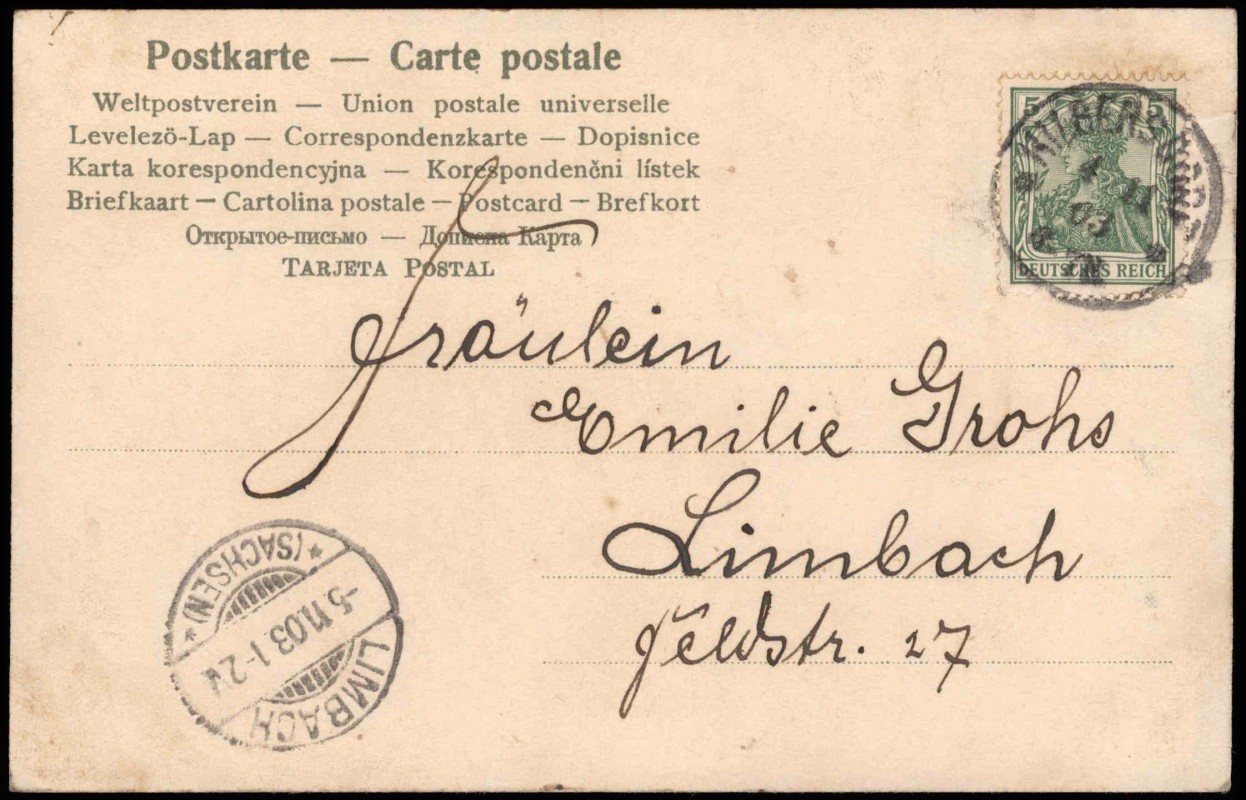 Postkarte — Carte postale
Weltpostverein — Union postale universelle
Levelezö-Lap — Correspondenzkarte — Dopisnice
Karta korespondencyjna — Korespondenčni lístek
Briefkaart — Cartolina postale — Postcard — Brefkort
Открытое-письмо — Дописна Карта
TARJETA POSTAL
5 5
DEUTSCHES REICH
4 11
03
Fräulein
Emilie Grohs
Limbach
Feldstr. 27
(SACHSEN)
-5.11.03.1-2V
LIMBACH